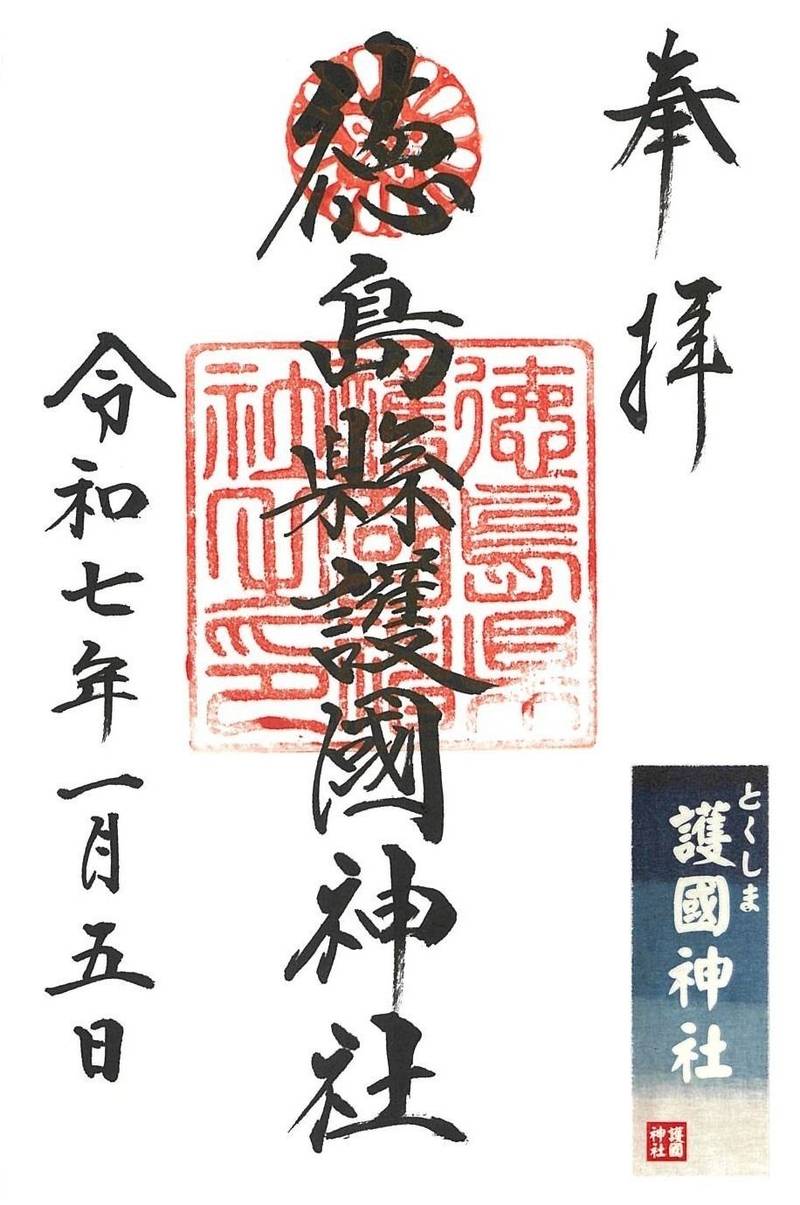 奉拝
徳島縣護國神社
徳島県
護國神
社之印
令和七年一月五日
とくしま
護國神社
護國
神社